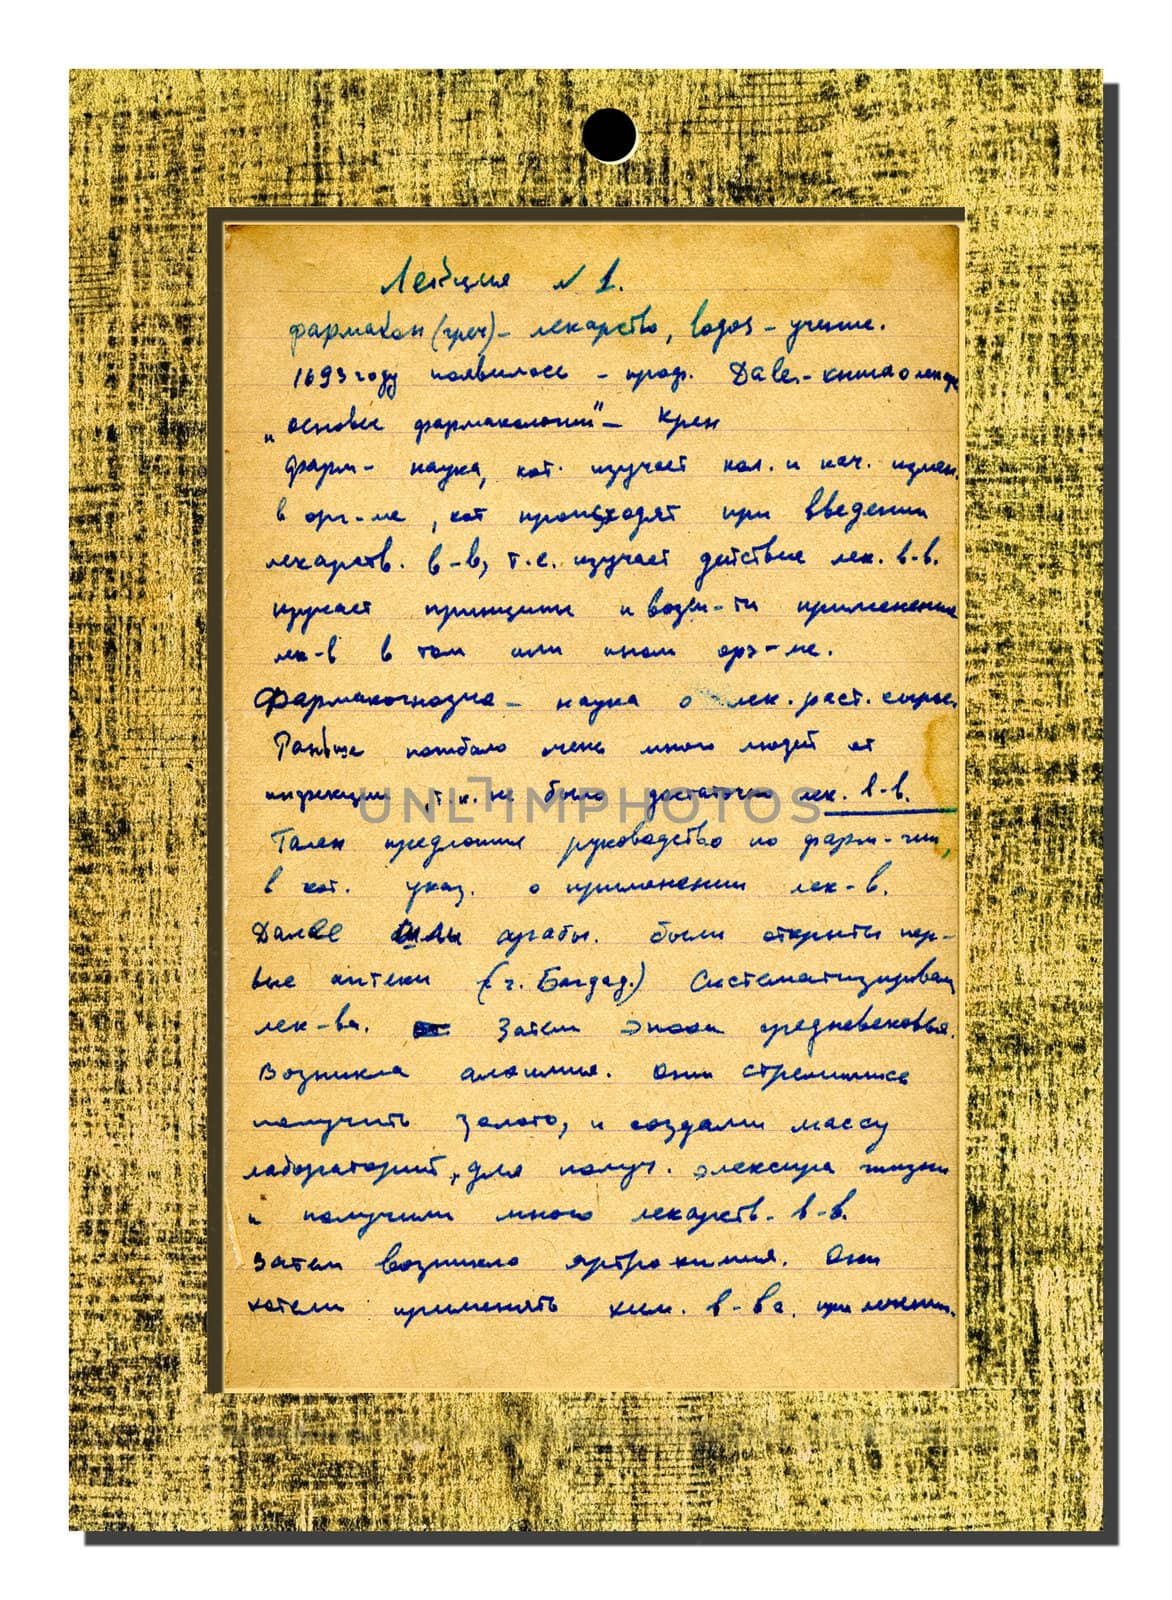 Лекция № 1.
фармакон (греч) - лекарство, logos - учение.
1693 году появилось - проф. Dale - книга о лек
"основы фармакологии" -
фарм - наука, кот. изучает кол. и кач. измен.
в орг-ме, кот происходят при введении
лекарств. в-в, т.е. изучает действие лек. в-в.
изучает принципы и возм-ти применения
лек-в в том или ином орг-ме.
Фармакогнозия - наука о лек. раст. сырье.
Раньше погибало очень много людей от
инфекции, т.к. не было достаточно лек. в-в.
Гален предложил руководство по фарм-гии,
в кот. указ. о применении лек-в.
Далее шли арабы. были открыты пер-
вые аптеки (г. Багдад.) Систематизировали
лек-ва. Затем эпоха средневековья.
Возникла алхимия. Они стремились
получить золото, и создали массу
лабораторий, для получ. элексира жизни
и получили много лекарств- в-в.
Затем возникло ятрохимия. Они
хотели применять хим. в-ва. при лечении.
UNLIMPHOTOS